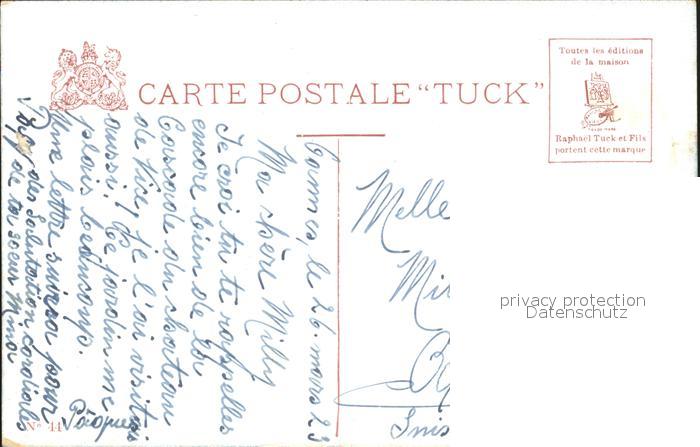 CARTE POSTALE "TUCK"
Toutes les éditions
de la maison
TRADE MARK
Raphael Tuck et Fils
portent cette marque
Cannes, le 26. mars 23
Ma chère Milly
Je croi tu te rappelles
encore bien de la
Cascade du chateau
de Nice, je l'ai visité
aussi, Le jardin me
plais beaucoup.
Une lettre suivra pour
Pâques
des Salutations cordiales
de ta soeur
Melle
Suis
Nº 44
privacy protection
Datenschutz